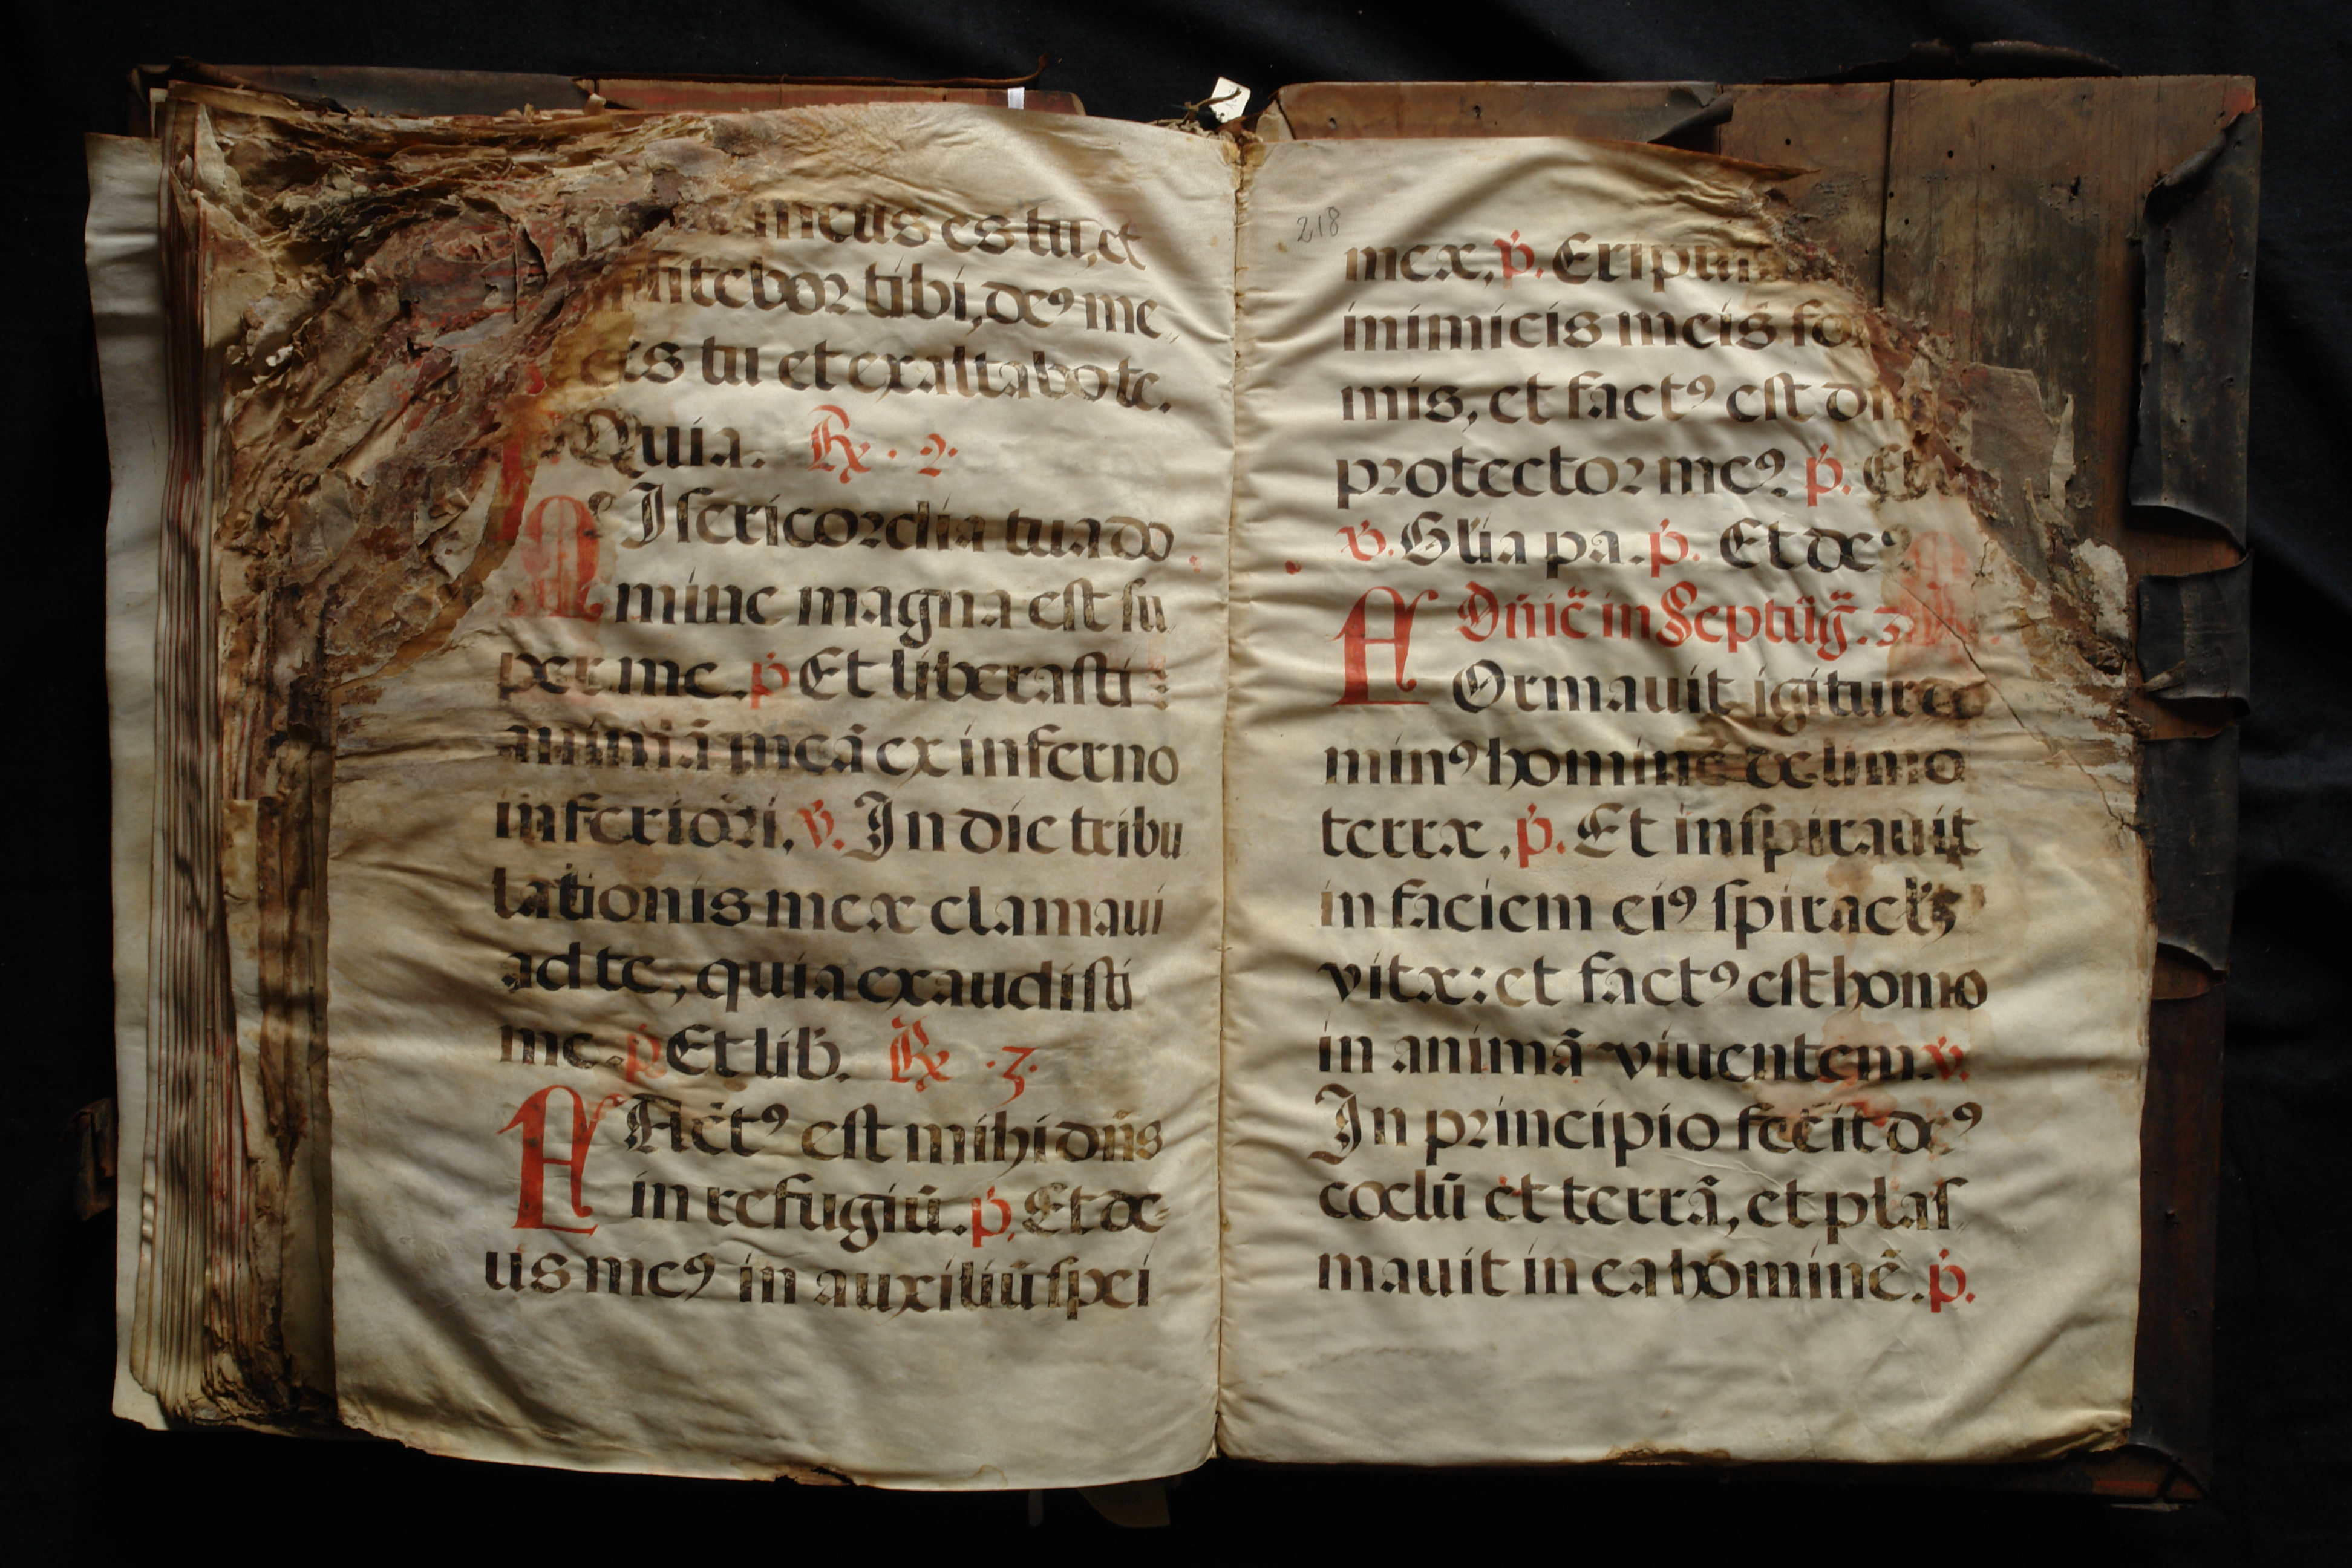 meus es tu, et
fitebor tibi, deꝰ me
es tu et exaltabo te.
Quia. ℟. 2.
MIsericordia tua do
mine magna est su
per me. p̄ Et liberasti
animā meā ex inferno
inferiori. v̄. In die tribu
lationis meæ clamaui
ad te, quia exaudisti
me. p̄ Et lib. ℟. 3.
FActꝰ est mihi dn̄s
in refugiū. p̄. Et de
us meꝰ in auxiliū spei
218
meæ, p̄. Eripui
inimicis meis
mis, et factꝰ est
protector meꝰ p̄. Et
v̄. Gl̄ia pa. p̄. Et deꝰ
Dn̄ic̄ in Septūḡ.
FOrmauit igitur do
minꝰ hominē de limo
terræ, p̄. Et inspirauit
in faciem eiꝰ spiracl̄ꝫ
vitæ: et factꝰ est homo
in animā viuentem. v̄.
In principio fecit deꝰ
cœlū et terrā, et plas
mauit in ea hominē. p̄.